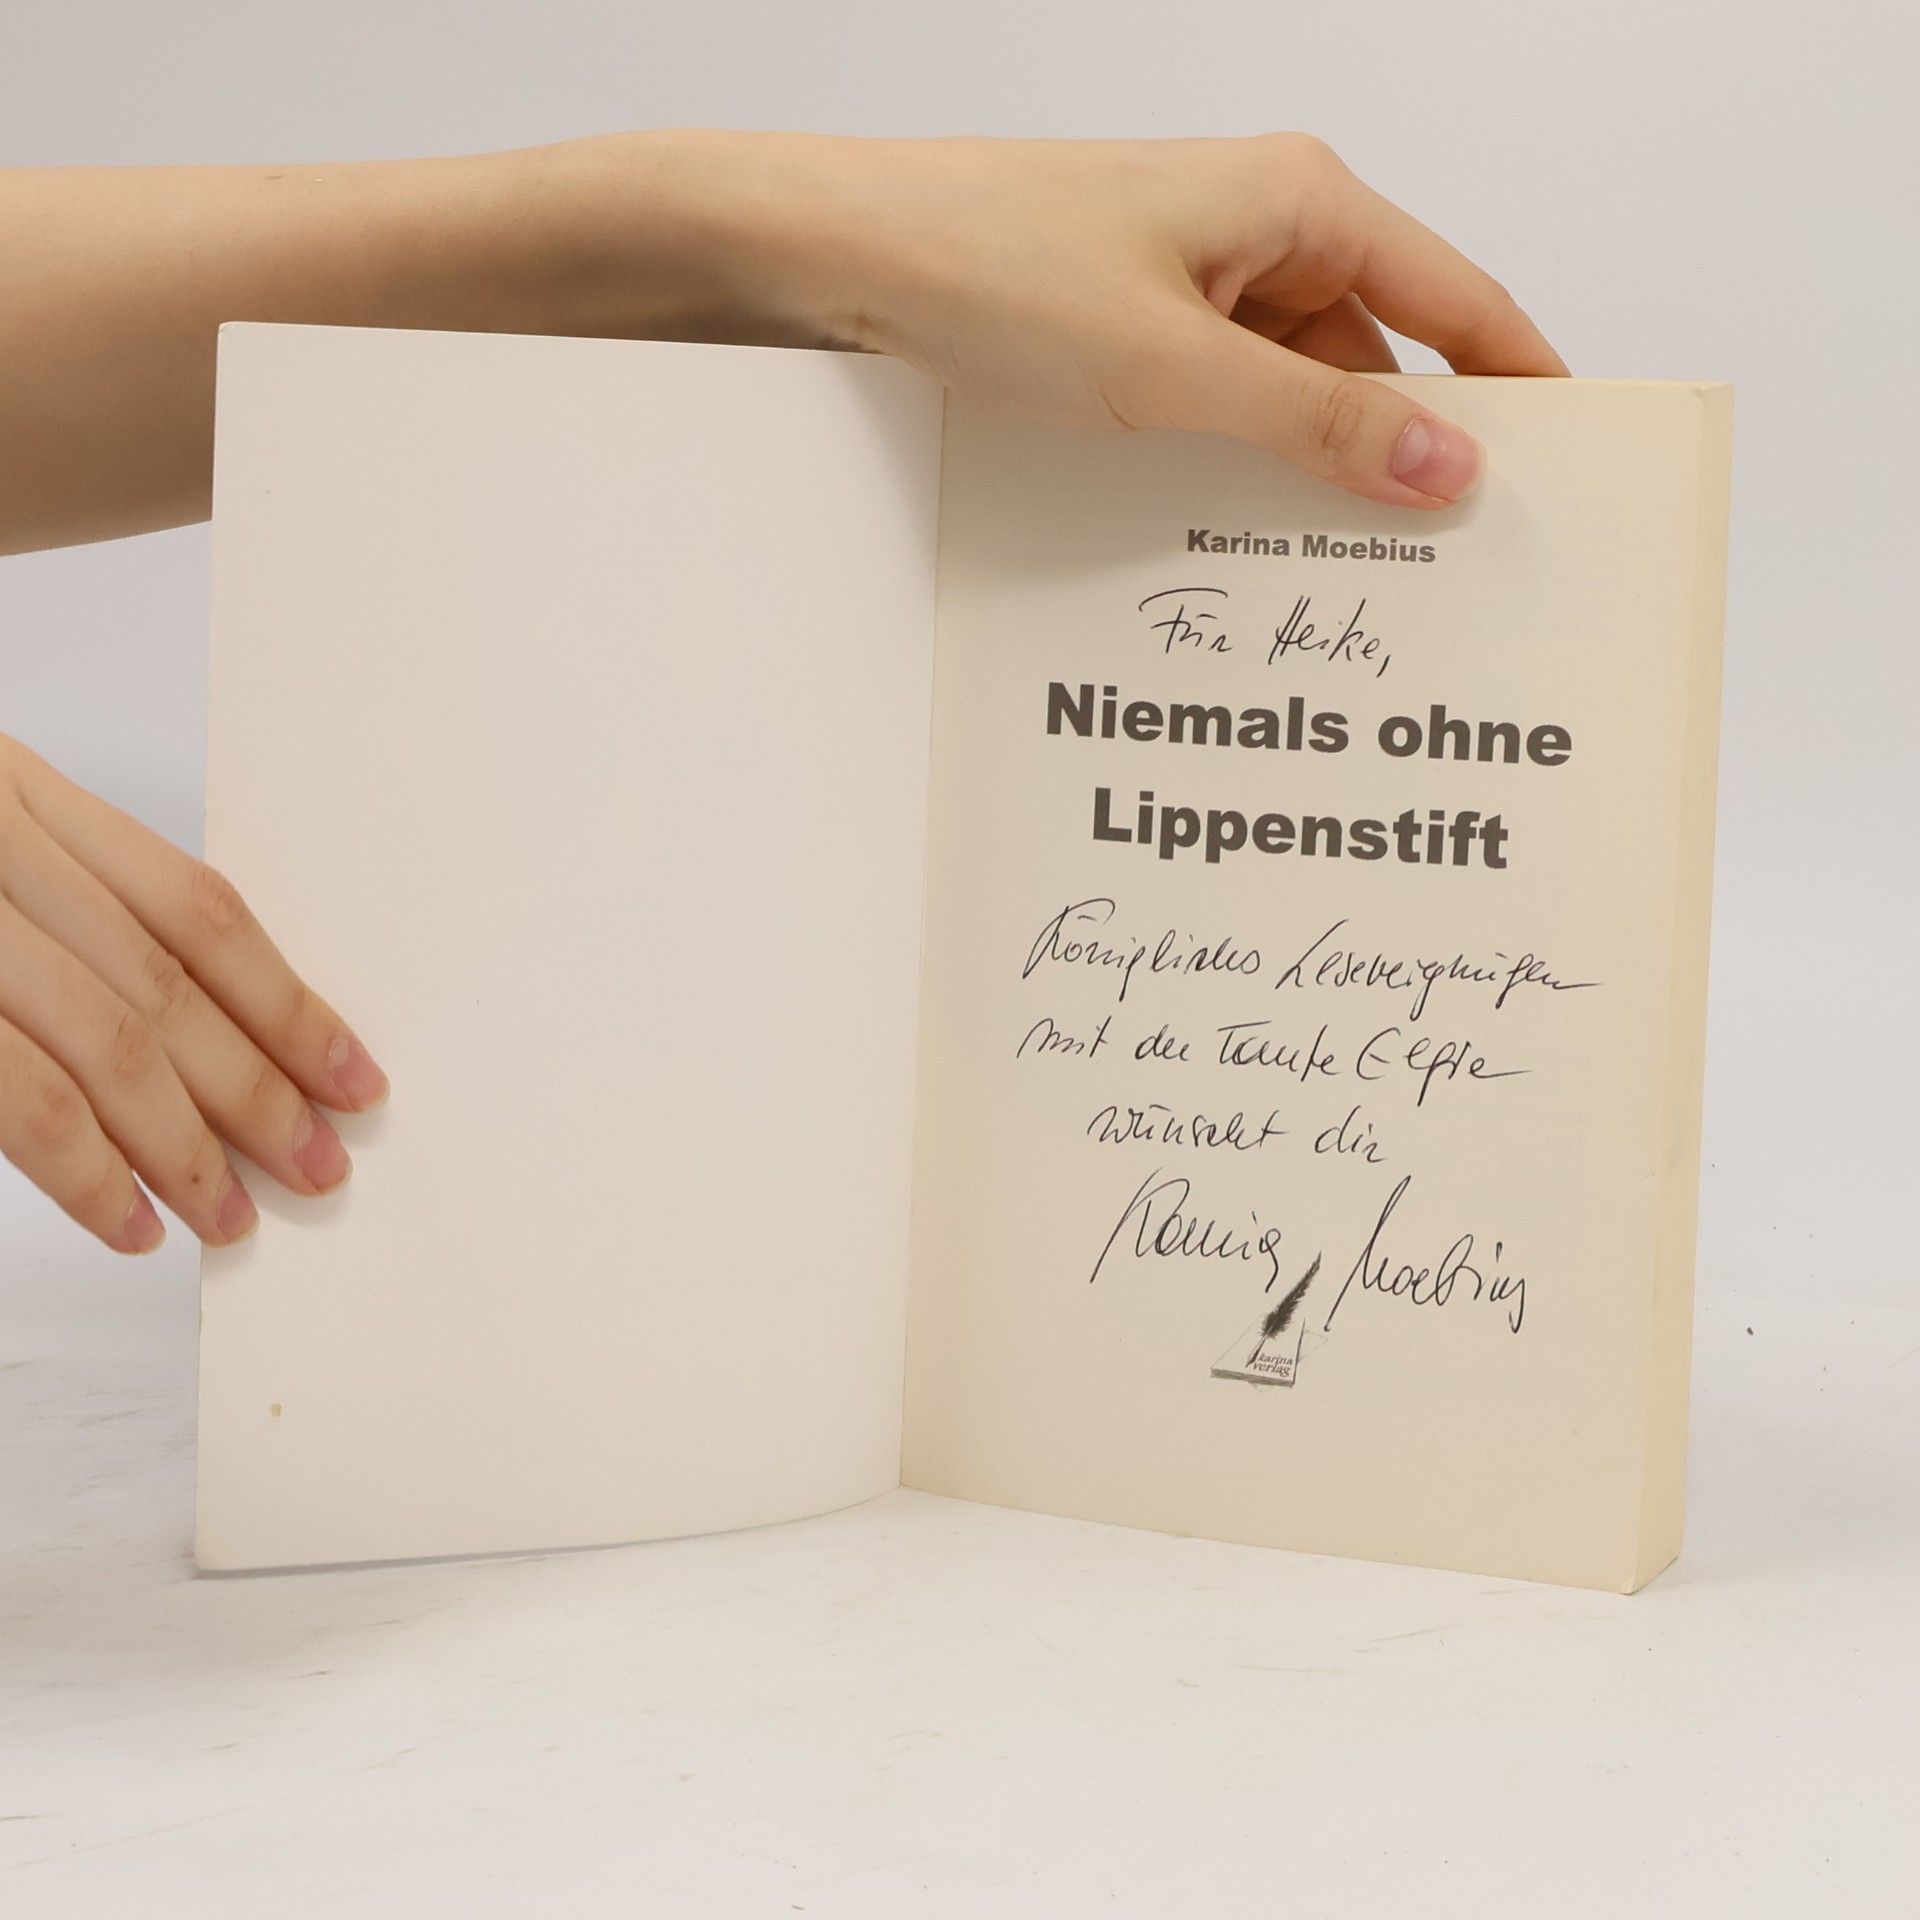 Karina Moebius
Für Heike,
Niemals ohne
Lippenstift
Königliches Lesevergnügen
mit der Tante Elfie
wünscht dir
Karina Moebius
karina
verlag